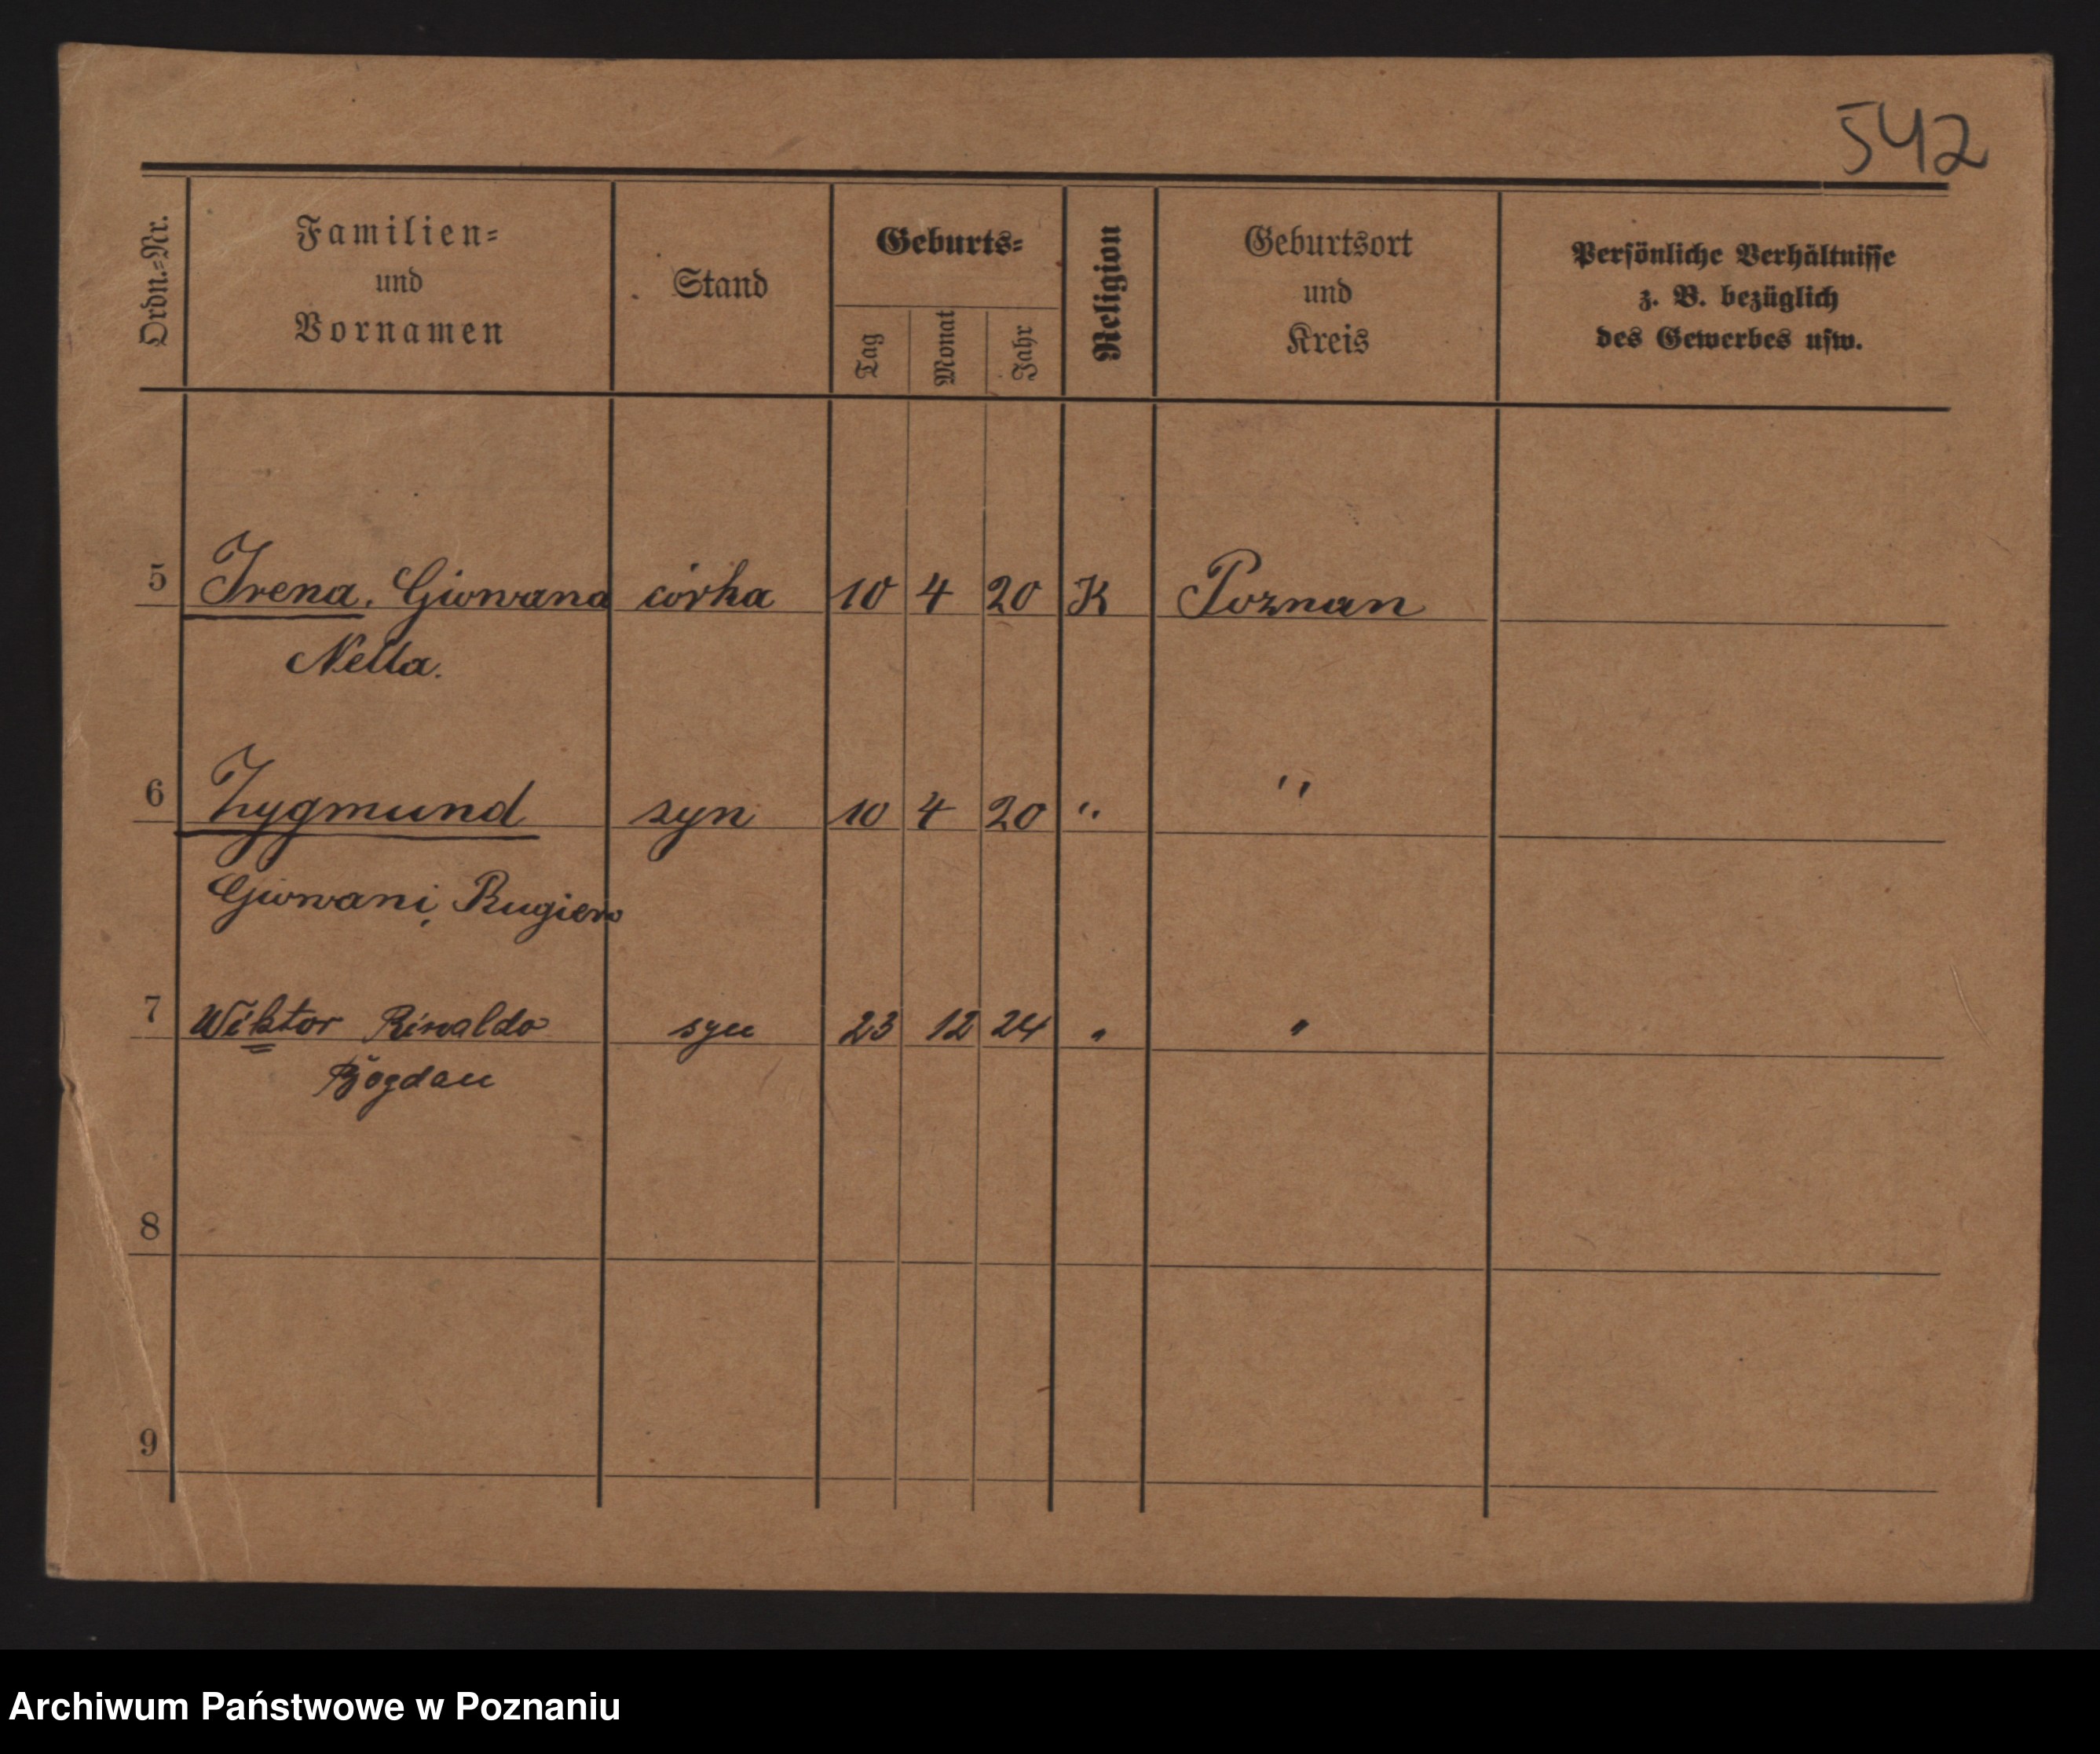 542
Ordn.=Nr.
Familien=
und
Vornamen
Stand
Geburts=
Tag
Monat
Jahr
Religion
Geburtsort
und
Kreis
Persönliche Verhältnisse
z. B. bezüglich
des Gewerbes usw.
5 Irena, Giowana córka 10 4 20 K Poznan
Nella.
6 Zygmund syn 10 4 20 " "
Giowani, Rugiero
7 Wiktor Rinaldo syn 23 12 24 " "
Bogdan
8
9
Archiwum Państwowe w Poznaniu